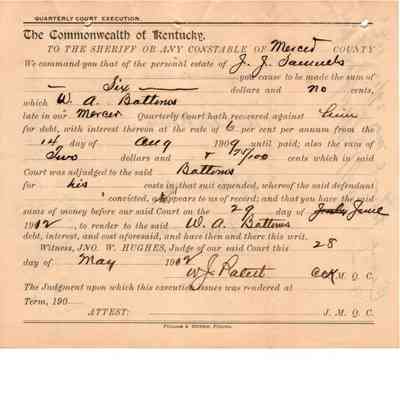 QUARTERLY COURT EXECUTION.
The Commonwealth of Kentucky.
TO THE SHERIFF OR ANY CONSTABLE OF Mercer COUNTY
We command you that of the personal estate of J. J. Samuels
you cause to be made the sum of
Six dollars and no cents,
which W. A. Bottoms
late in our Mercer Quarterly Court hath recovered against him
for debt, with interest thereon at the rate of 6 per cent per annum from the
14 day of Aug 1909 until paid; also the sum of
Two dollars and 75/100 cents which in said
Court was adjudged to the said Bottoms
for his costs in that suit expended, whereof the said defendant
convicted, as appears to us of record; and that you have the said
sums of money before our said Court on the 29 day of June
1912, to render to the said W. A. Bottoms
debt, interest, and cost aforesaid, and have then and there this writ.
Witness, JNO. W. HUGHES, Judge of our said Court this 28
day of May 1912
W J C M. Q. C.
The Judgment upon which this execution issues was rendered at
Term, 190
ATTEST: J. M. Q. C.